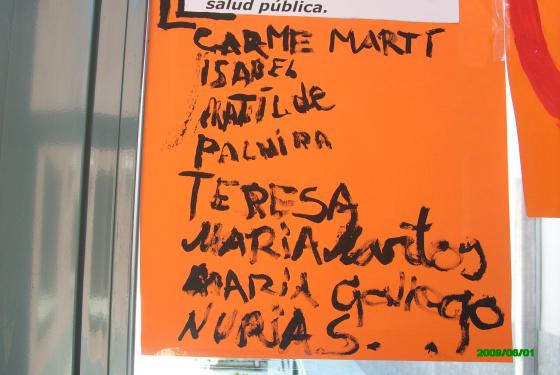 salud pública.
CARME MARTÍ
ISABEL
MATILDE
PALMIRA
TERESA
MARIA Santos
MARIA Gallego
NURIA S.
2009/06/01